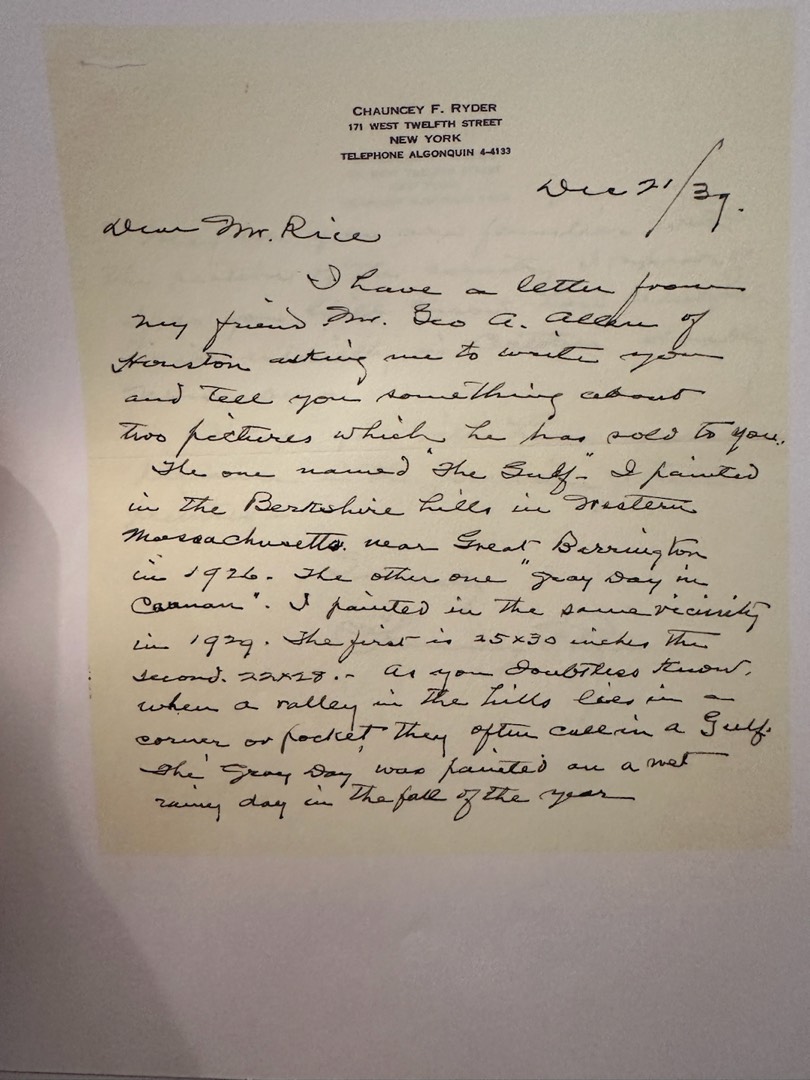 CHAUNCEY F. RYDER
171 WEST TWELFTH STREET
NEW YORK
TELEPHONE ALGONQUIN 4-4133
Dec 21/39.
Dear Mr. Rice
I have a letter from
my friend Mr. Geo A. Allen of
Houston asking me to write you
and tell you something about
two pictures which he has sold to you.
The one named "The Gulf" - I painted
in the Berkshire hills in Western
Massachusetts. near Great Barrington
in 1926. The other one "Gray Day in
Canaan". I painted in the same vicinity
in 1929. The first is 25x30 inches the
second. 22x28. - As you doubtless know,
when a valley in the hills lies in a
corner or pocket, they often call in a Gulf.
The 'Gray Day' was painted on a wet
rainy day in the fall of the year